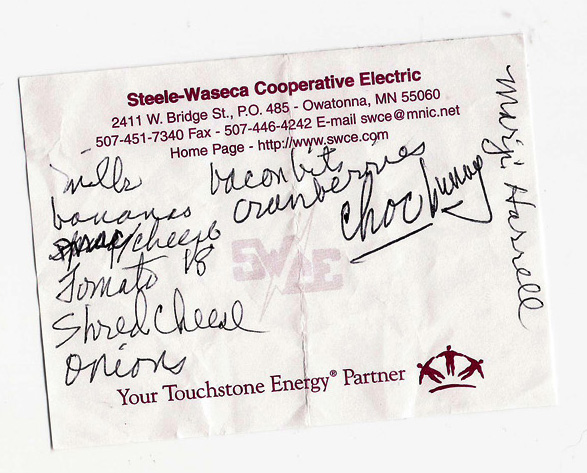 Steele-Waseca Cooperative Electric
2411 W. Bridge St., P.O. 485 - Owatonna, MN 55060
507-451-7340 Fax - 507-446-4242 E-mail swce@mnic.net
Home Page - http://www.swce.com
milk
bananas
/cheese
Tomato V8
Shred Cheese
onions
bacon bits
cranberries
choc bunny
SWCE
Your Touchstone Energy® Partner
Marji Harrell